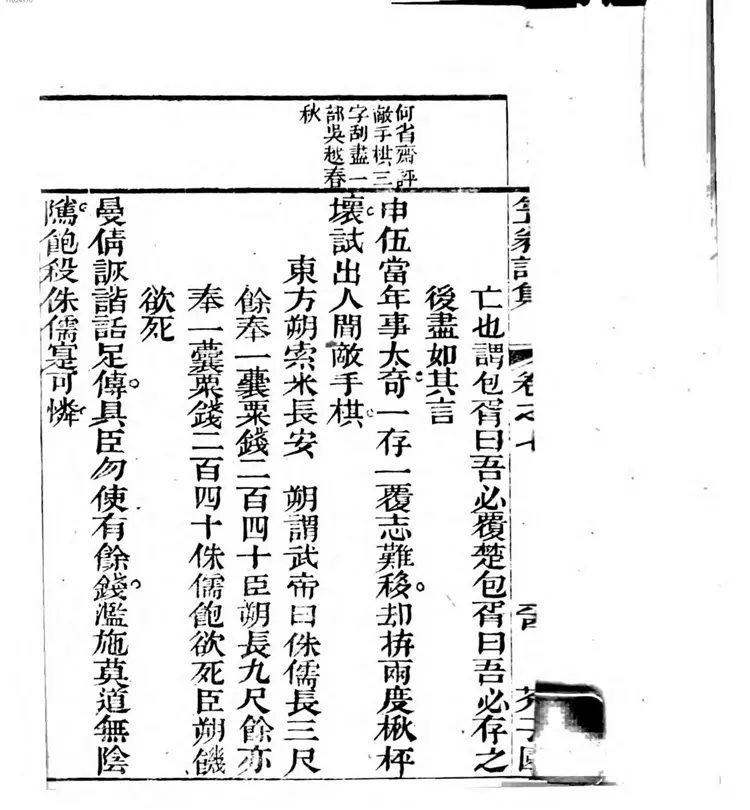 何省齋評
敵手棋三
字刮盡一
部吳越春
秋
亡也謂包胥曰吾必覆楚包胥曰吾必存之
後盡如其言
申伍當年事太奇一存一覆志難移却拚兩度楸枰
壞試出人間敵手棋
東方朔索米長安 朔謂武帝曰侏儒長三尺
餘奉一囊粟錢二百四十臣朔長九尺餘亦
奉一囊粟錢二百四十侏儒飽欲死臣朔饑
欲死
曼倩詼諧話足傳具臣勿使有餘錢濫施莫道無陰
隲飽殺侏儒寔可憐